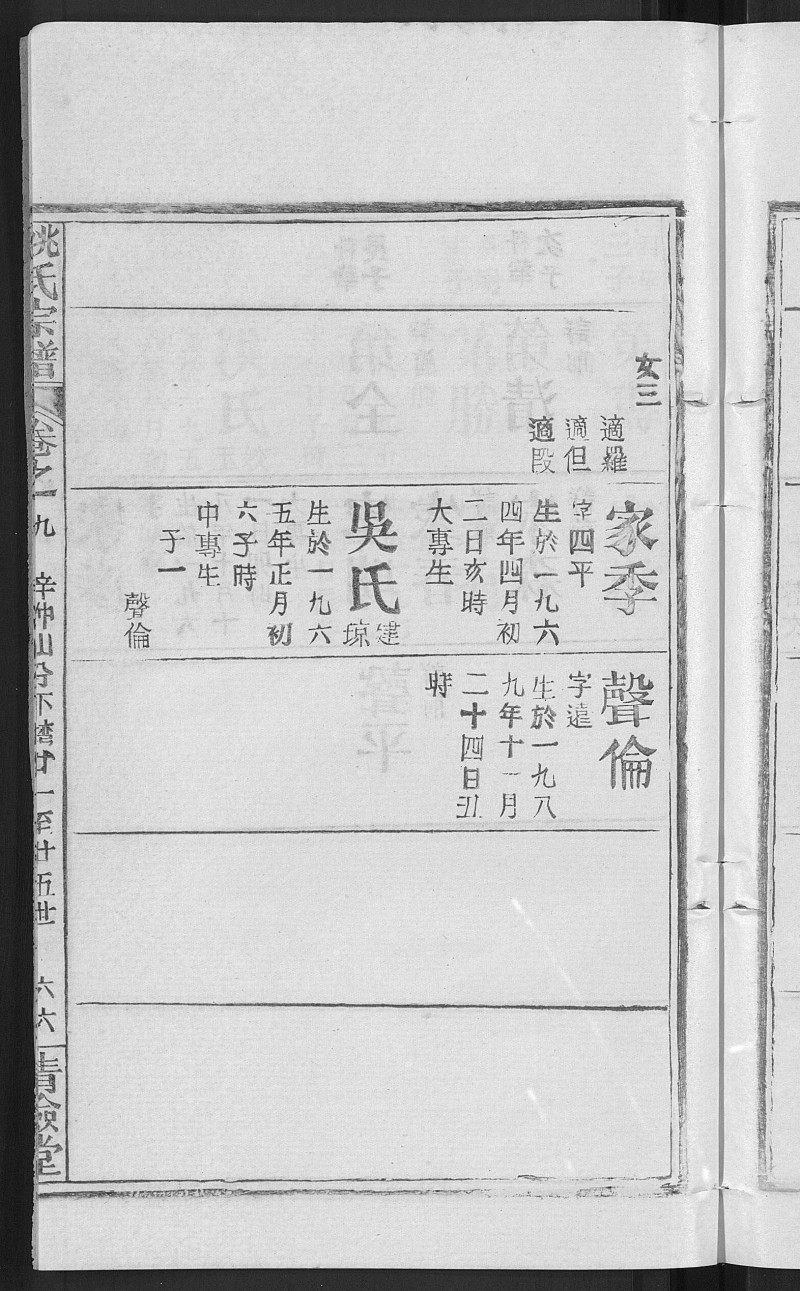 女三
適羅
適但
適段
家季
字四平
生於一九六
四年四月初
二日亥時
大專生
吳氏
建琼
生於一九六
五年正月初
六子時
中專生
子一
聲倫
聲倫
字遠
生於一九八
九年十一月
二十四日丑
時
姚氏宗譜
卷之一九
辛冲山分下灣廿一至廿五世
六六
清儉堂